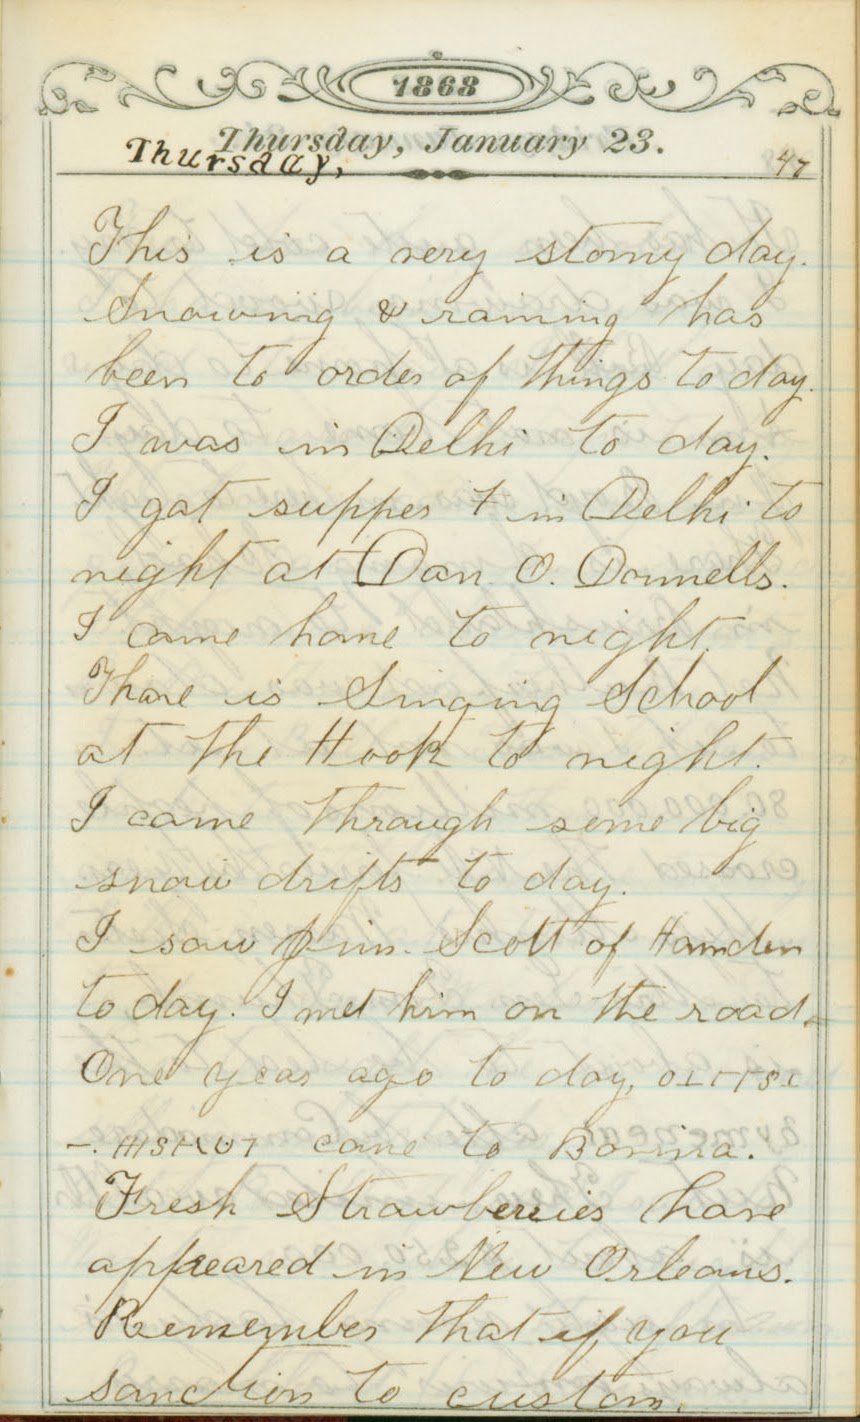 1868
Thursday, January 23.
Thursday, 47
This is a very stormy day.
Snowing & raining has
been to order of things to day.
I was in Delhi to day.
I got supper + in Delhi to
night at Dan O. Donnells.
I came home to night.
Thare is Singing School
at the Hook to night.
I came through some big
snow drifts to day.
I saw Jim. Scott of Hamden
to day. I met him on the road.
One year ago to day,
came to Bovina.
Fresh Strawberries have
appeared in New Orleans.
Remember that if you
sanction to custom.